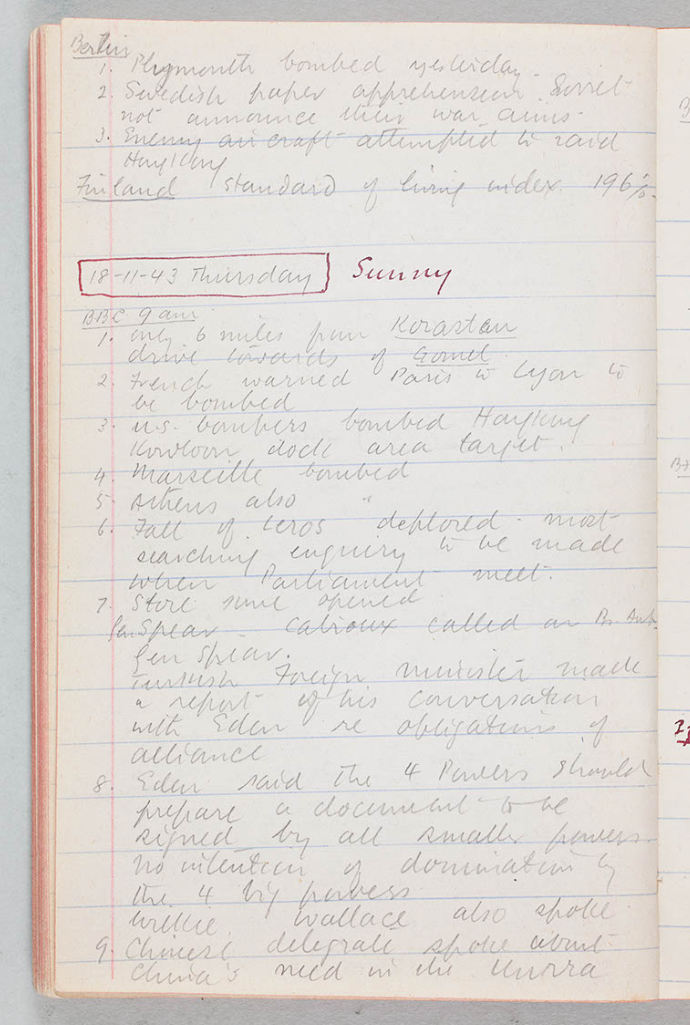 Berlin
1. Plymouth bombed yesterday.
2. Swedish paper apprehension Soviet
not announce their war aims.
3. Enemy aircraft attempted to raid
HongKong
Finland standard of living index 196%.
18-11-43 Thursday Sunny
BBC 9 am
1. only 6 miles from Korastan
drive towards of Gomel
2. French warned Paris to Lyon to
be bombed
3. U.S. bombers bombed HongKong
Kowloon dock area target.
4. Marseille bombed
5. Athens also "
6. Fall of Leros deplored. most
searching enquiry to be made
when Parliament meet.
7. Store opened
Gen Spear. Catroux called on Br. Amb.
Gen Spear.
Turkish Foreign minister made
a report of his conversation
with Eden re obligations of
alliance
8. Eden said the 4 Powers should
prepare a document to be
signed by all smaller powers.
no intention of domination by
the 4 big powers
Wallace also spoke
9. Chinese delegate spoke about
China's need in the Unrra